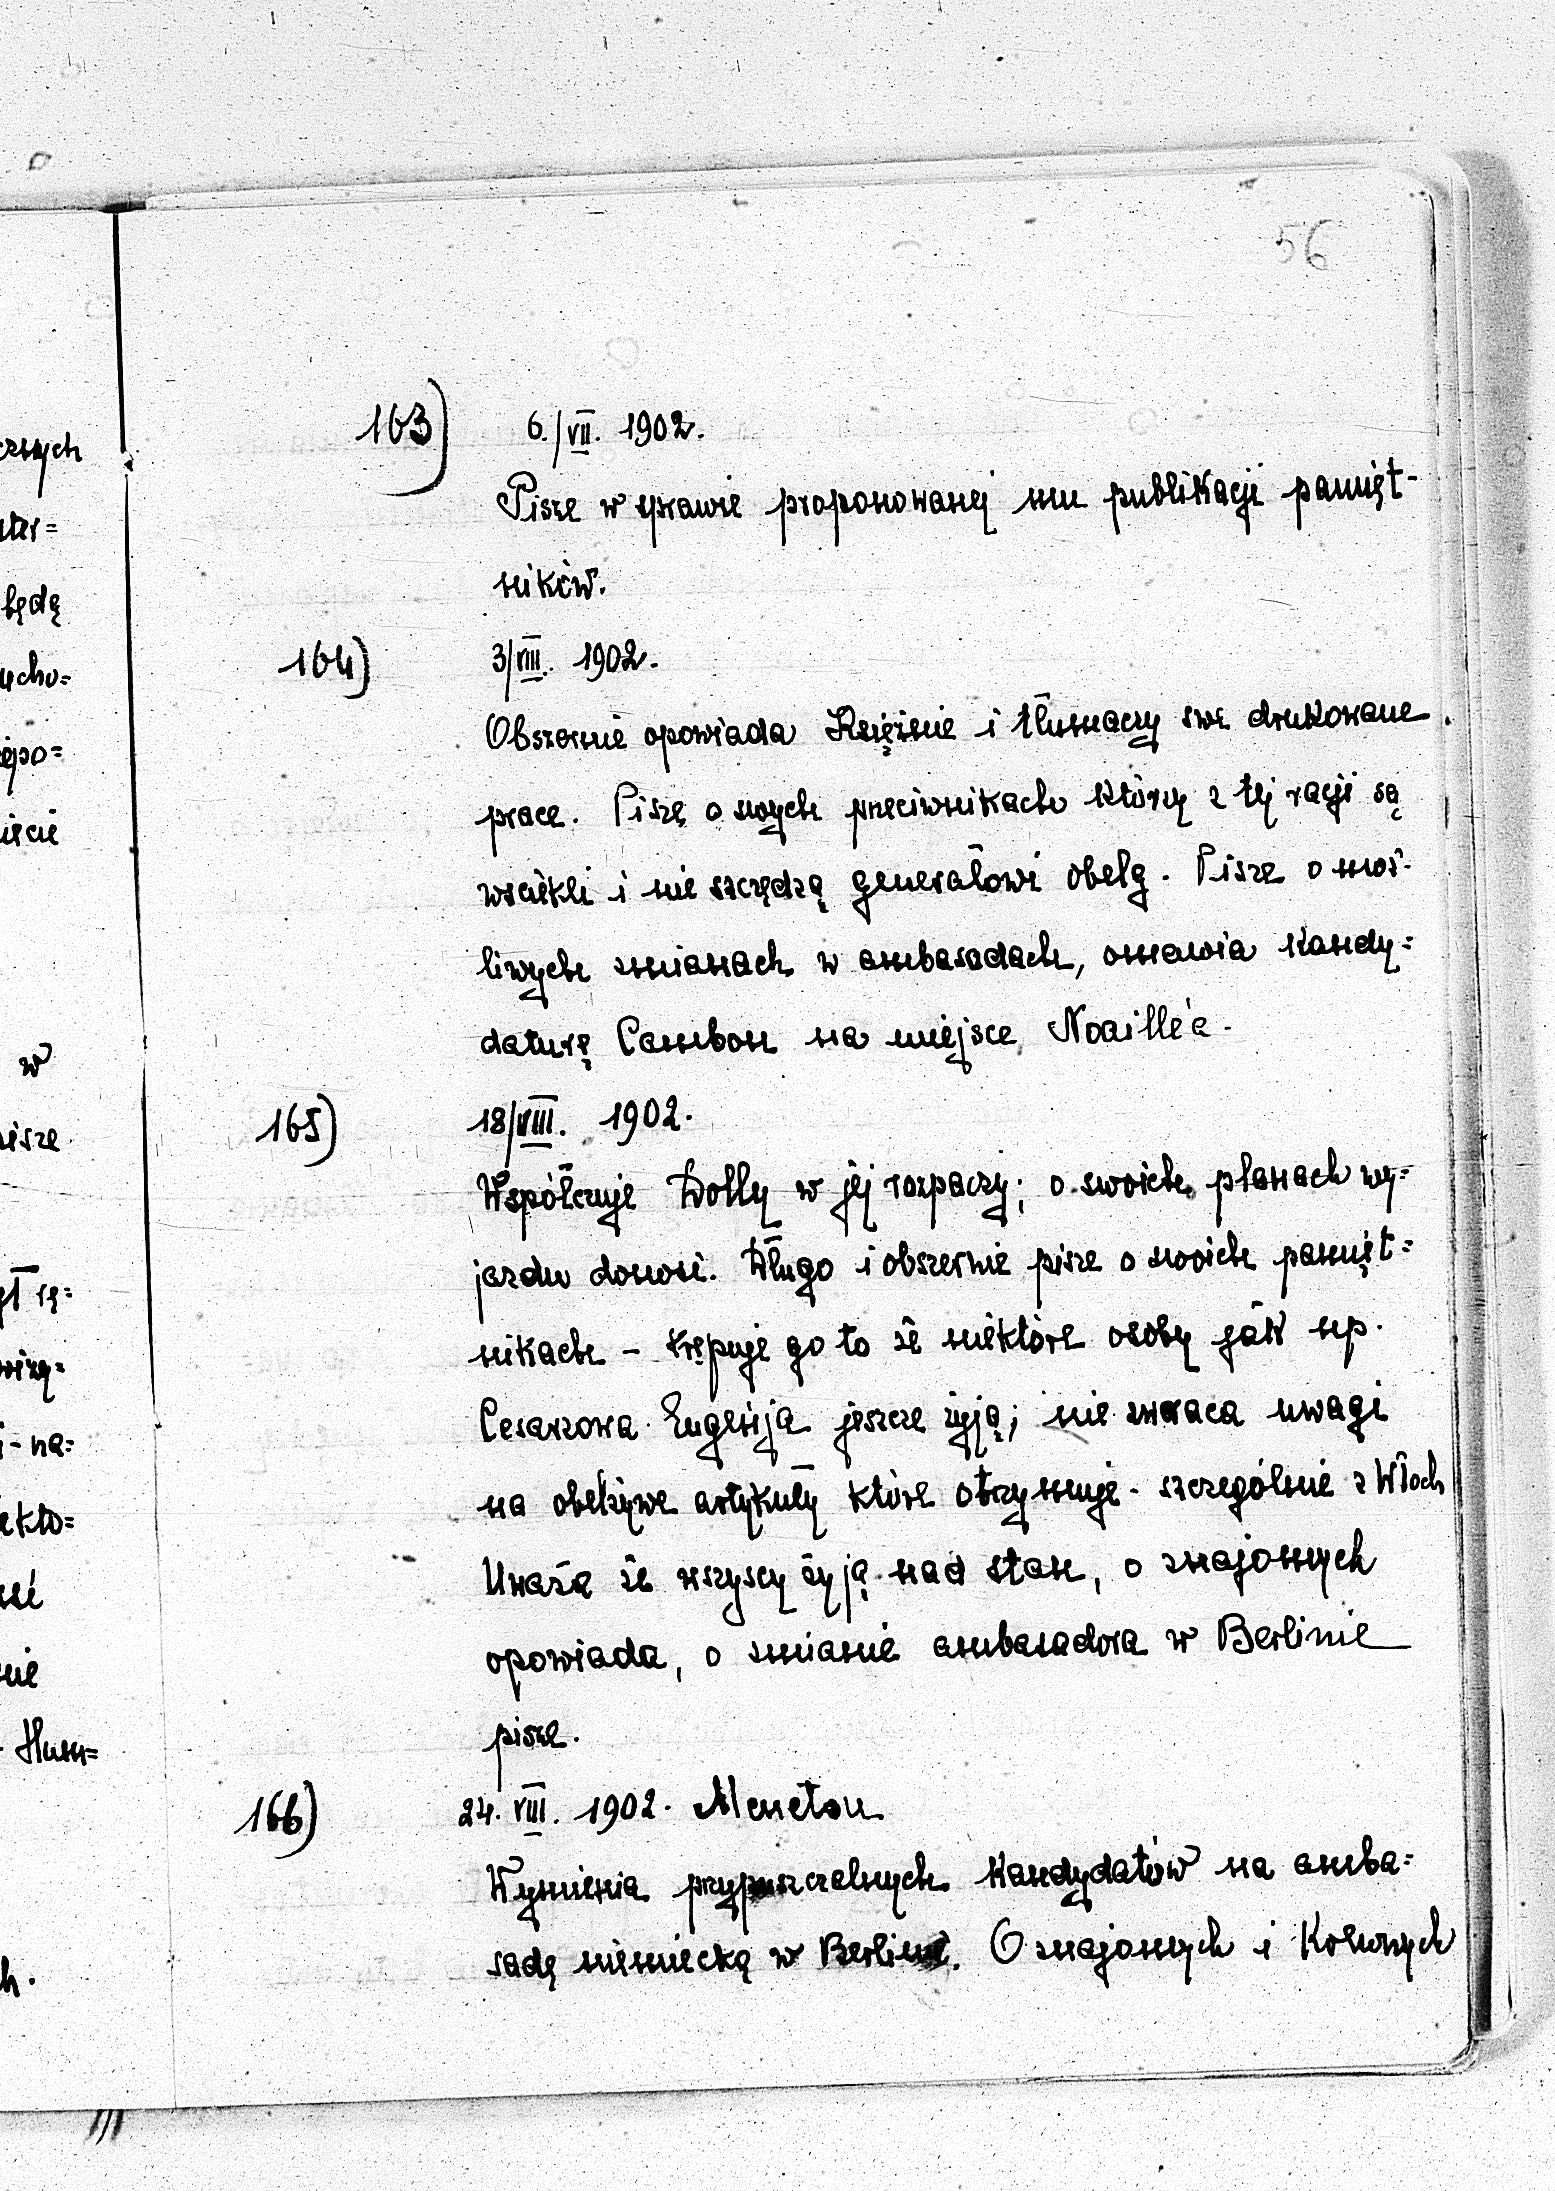 56
163) 6./VII. 1902.
Pisze w sprawie proponowanej mu publikacji pamięt-
ników.
164) 3/VIII. 1902.
Obszernie opowiada Księżnie i tłumaczy swe drukowane
prace. Pisze o swych przeciwnikach którzy z tej racji są
wściekli i nie szczędzą generałowi obelg. Pisze o moż-
liwych zmianach w ambasadach, omawia kandy=
daturę Cambon na miejsce Noaille'a.
165) 18/VIII. 1902.
Współczuje Dolly w jej rozpaczy; o swoich planach wy=
jazdu donosi. Długo i obszernie pisze o swoich pamięt=
nikach – krępuje go to że niektóre osoby jak np.
Cesarzowa Eugenja jeszcze żyją; nie zwraca uwagi
na obelżywe artykuły które otrzymuje - szczególnie z Włoch
Uważa że wszyscy żyją nad stan, o znajomych
opowiada, o zmianie ambasadora w Berlinie
pisze.
166) 24. VIII. 1902. Meneton
Wymienia przypuszczalnych kandydatów na amba=
sadę niemiecką w Berlinie. O znajomych i krewnych
cznych
będą
w